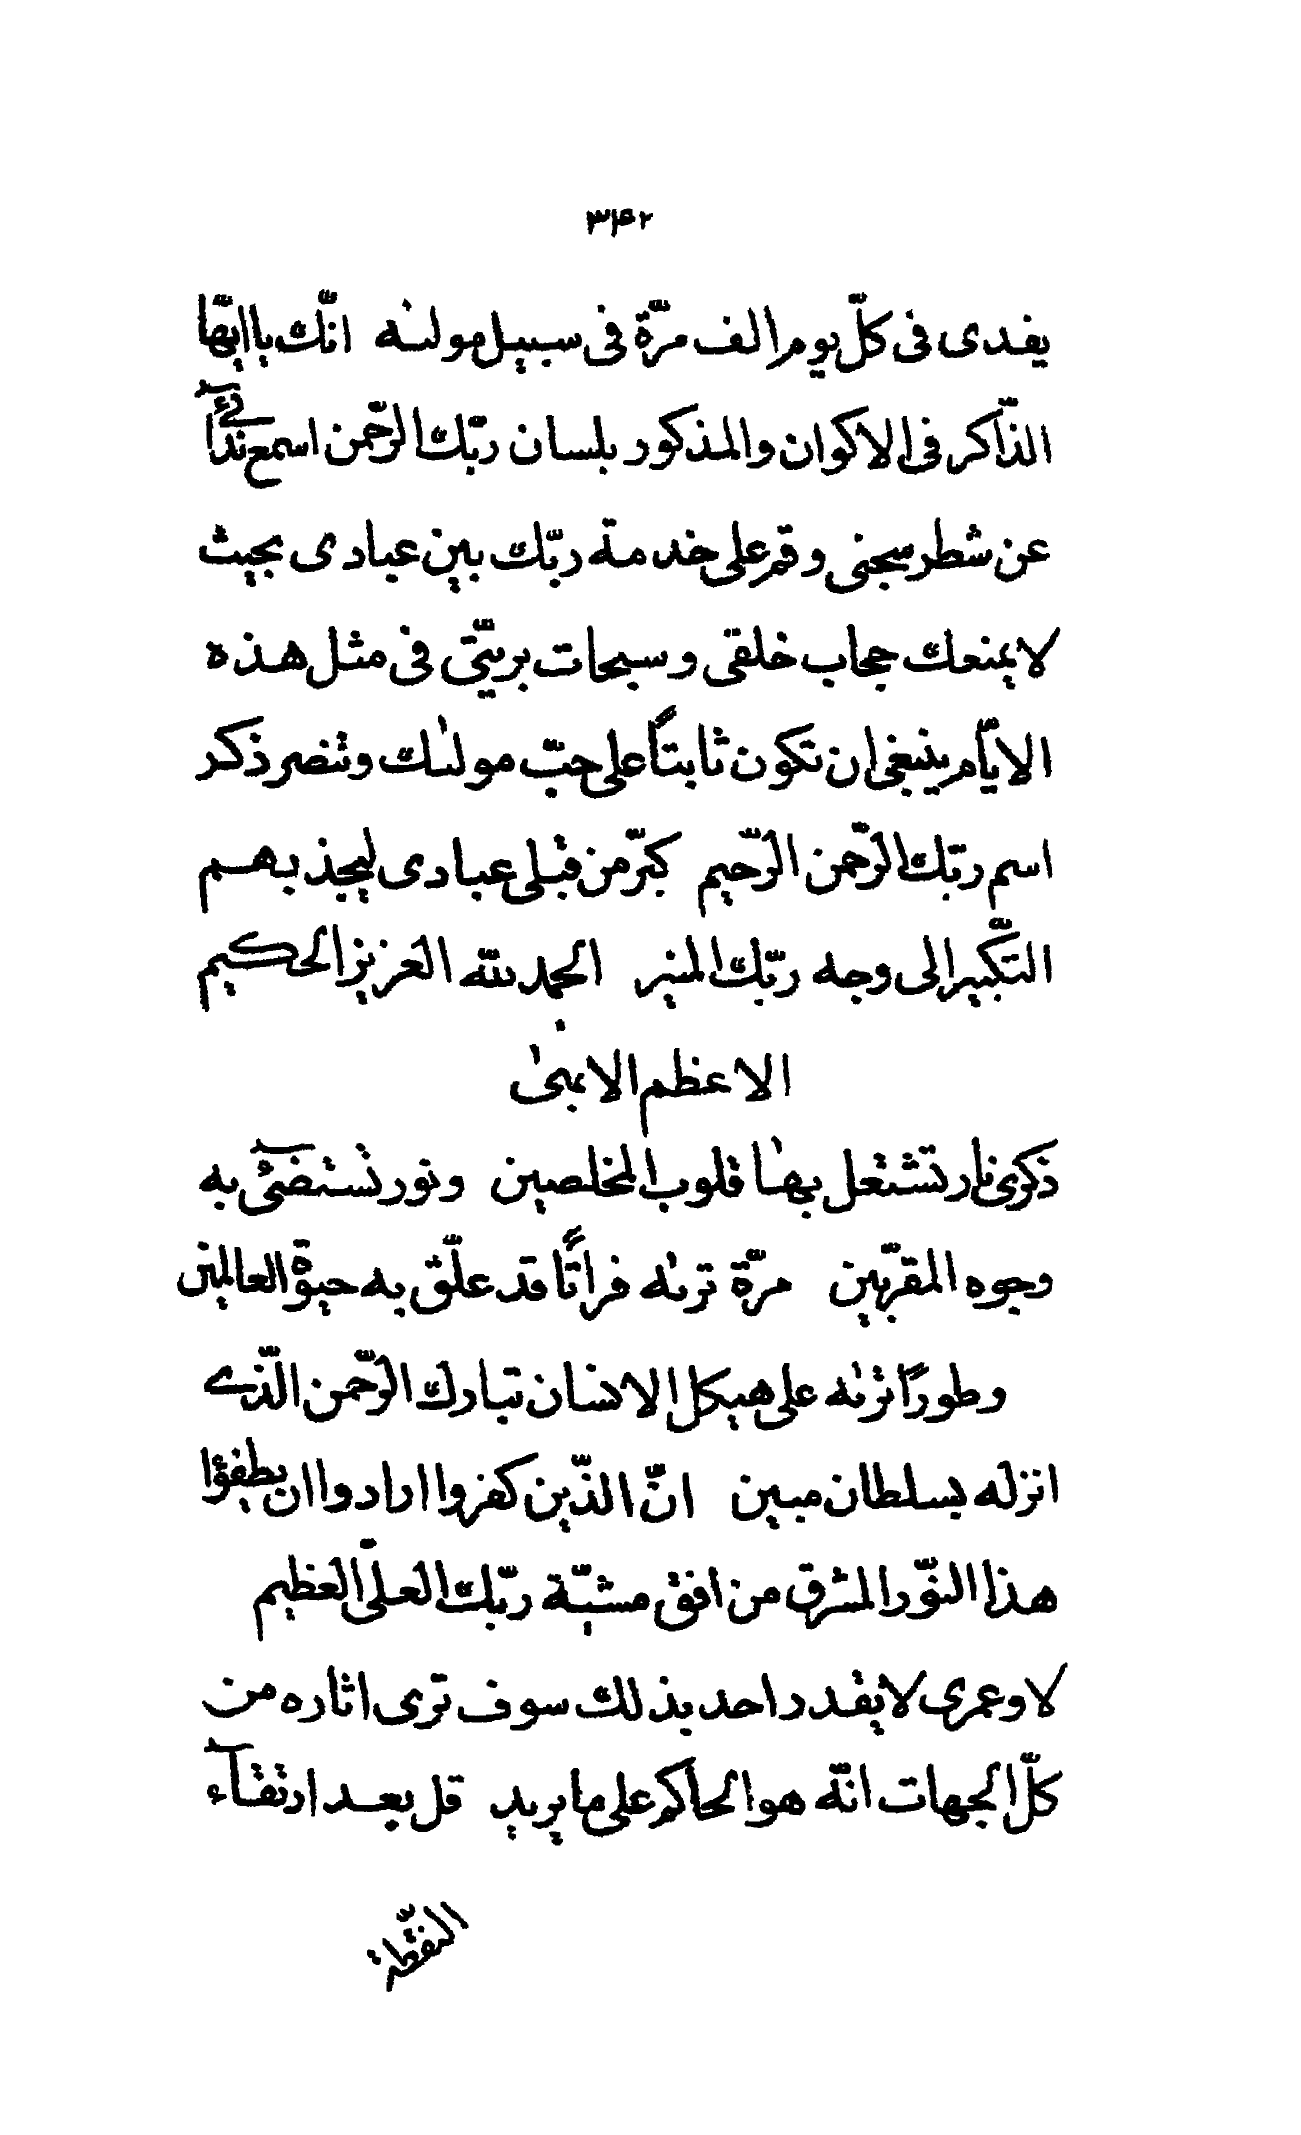 ۳۴۲
یفدی فی کلّ یوم الف مرّة فی سبیل مولیٰه انّک یا ایّها
الذّاکر فی الاکوان والمذکور بلسان ربّک الرّحمن اسمع ندآئی
عن شطر سجنی و قم علی خدمة ربّک بین عبادی بحیث
لا یمنعک حجاب خلقی و سبحات بریّتی فی مثل هذه
الایّام ینبغی ان تکون ثابتاً علی حبّ مولیٰک و تنصر ذکر
اسم ربّک الرّحمن الرّحیم کبّر من قبلی عبادی لیجذبهم
التّکبیر الی وجه ربّک المنیر الحمد للّه العزیز الحکیم
الاعظم الابهیٰ
ذکری نار تشتعل بهٰا قلوب المخلصین و نور تستضیٓئ به
وجوه المقرّبین مرّة تریٰه فراتاً قد علّق به حیوة العالمین
و طوراً تریٰه علی هیکل الانسان تبارک الرّحمن الّذی
انزله بسلطان مبین انّ الذّین کفروا ارادوا ان یطفؤا
هذا النّور المشرق من افق مشیّة ربّک العلیّ العظیم
لا و عمری لا یقدر احد بذلک سوف تری اثاره من
کلّ الجهات انّه هو الحاکم علی ما یرید قل بعد ارتقآء
النقّطة